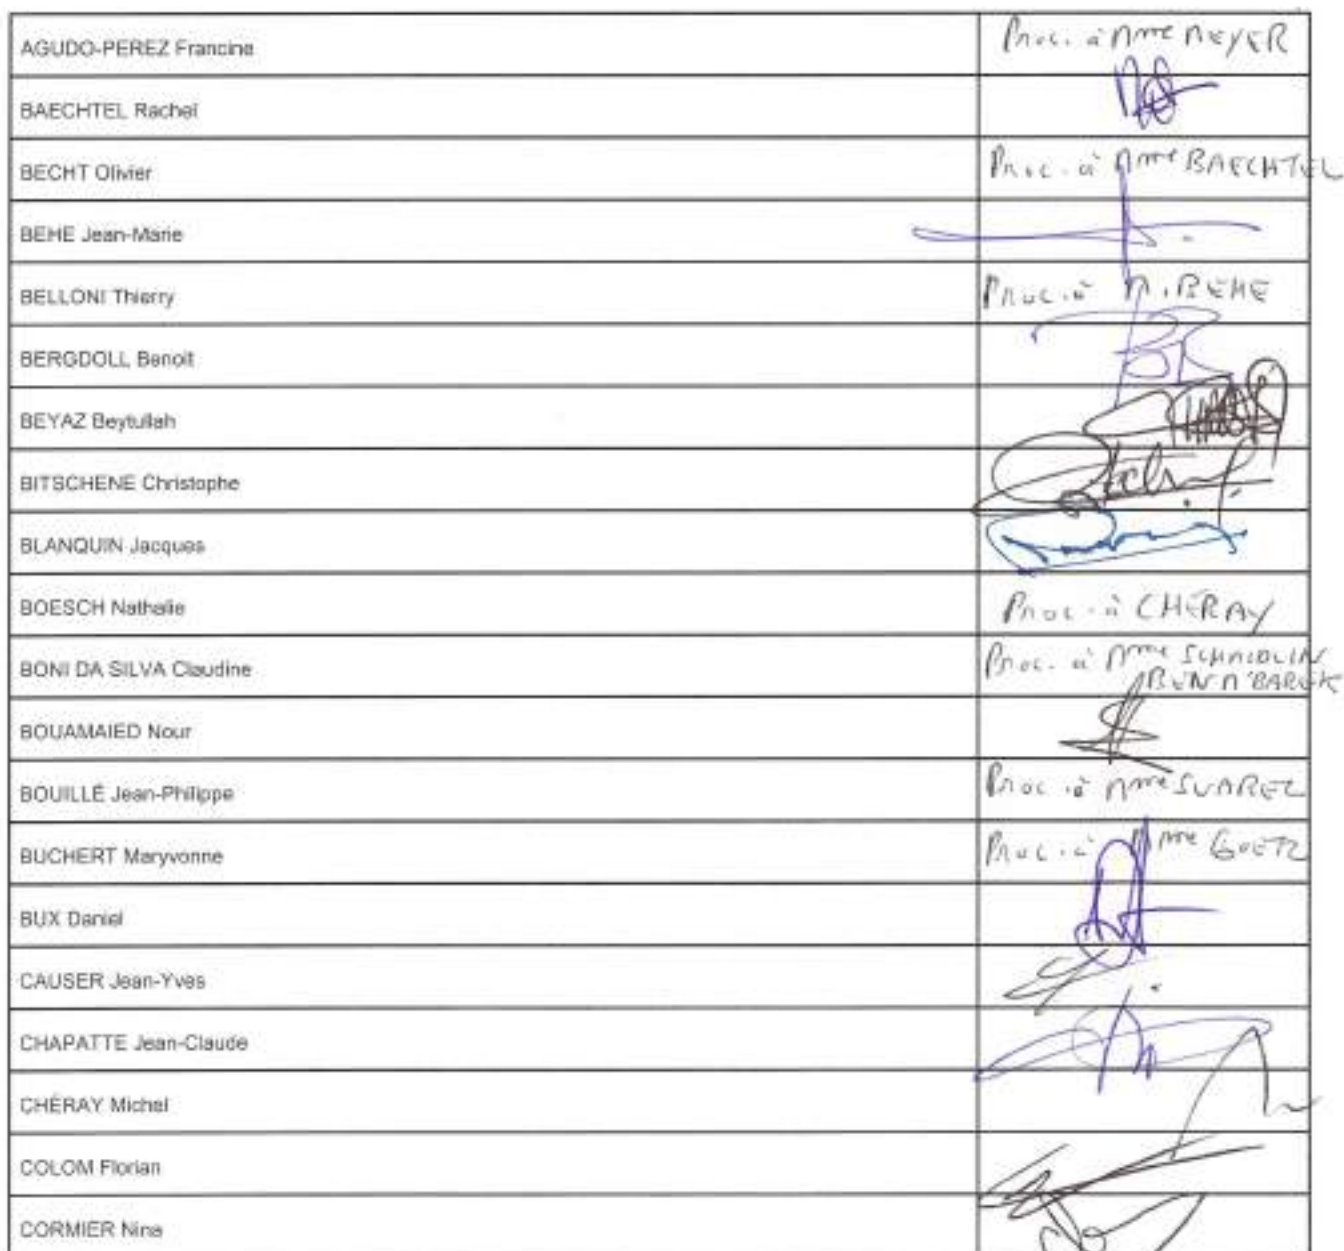 AGUDO-PEREZ Francine
Proc. à Mme MEYER
BAECHTEL Rachel
BECHT Olivier
Proc. à Mme BAECHTEL
BEHE Jean-Marie
BELLONI Thierry
Proc. à M. BEHE
BERGDOLL Benoit
BEYAZ Beytullah
BITSCHENE Christophe
BLANQUIN Jacques
BOESCH Nathalie
Proc. à CHERAY
BONI DA SILVA Claudine
Proc. à Mme SCHMIDLIN
BEN M'BAREK
BOUAMAIED Nour
BOUILLÉ Jean-Philippe
Proc. à Mme SUAREZ
BUCHERT Maryvonne
Proc. à Mme GOETZ
BUX Daniel
CAUSER Jean-Yves
CHAPATTE Jean-Claude
CHÉRAY Michel
COLOM Florian
CORMIER Nina